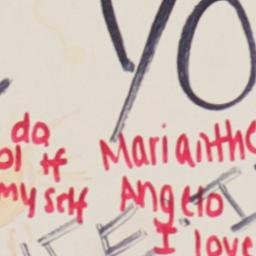 YO
da
ol If
myself
Marianthe
Angelo
I love